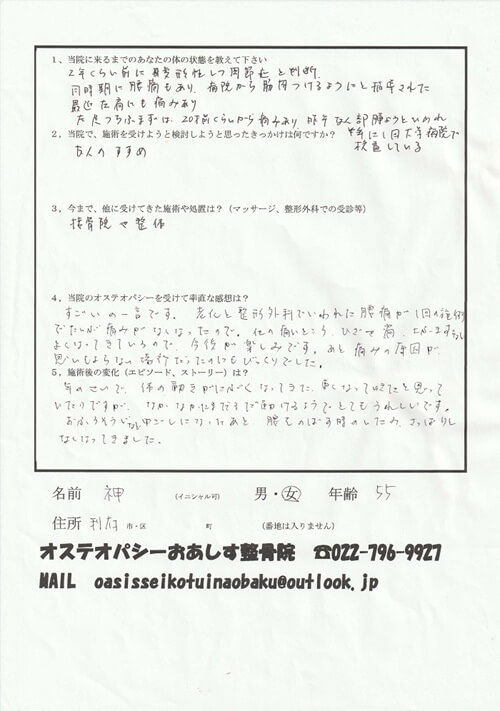 1、当院に来るまでのあなたの体の状態を教えて下さい
2年くらい前に変形性しつ関節症と判断。
同時期に腰痛もあり、病院から筋肉つけるようにと指導された
最近左肩にも痛みあり
左足つちふまずは、20才前くらいから痛みあり 昨年
2、当院で、施術を受けようと検討しようと思ったきっかけは何ですか？ 年に1回大学病院で
友人のすすめ 検査している
3、今まで、他に受けてきた施術や処置は？（マッサージ、整形外科での受診等）
接骨院や整体
4、当院のオステオパシーを受けて率直な感想は？
すごいの一言です。老化と整形外科でいわれた腰痛が1回の施術
でだいぶ痛みがなくなったので。他の痛いところ、ひざや肩、土ふまずなど
よくなってきているので、今後が楽しみです。あと痛みの原因が、
思いもよらない場所だったのにもびっくりでした。
5、施術後の変化（エピソード、ストーリー）は？
年のせいで、体の動きがにぶくなってきた、重くなってきたと思って
いたりですが、なかなかまだまだ動けるようでとてもうれしいです。
おふろそうじなど中ごしになったあと、腰をのばす時のしたみ、さっぱりし
なくなってきました。
名前 神 （イニシャル可） 男・女 年齢 55
住所 利府 市・区 町 （番地は入りません）
オステオパシーおあしす整骨院 ☎022-796-9927
MAIL oasisseikotuinaobaku@outlook.jp